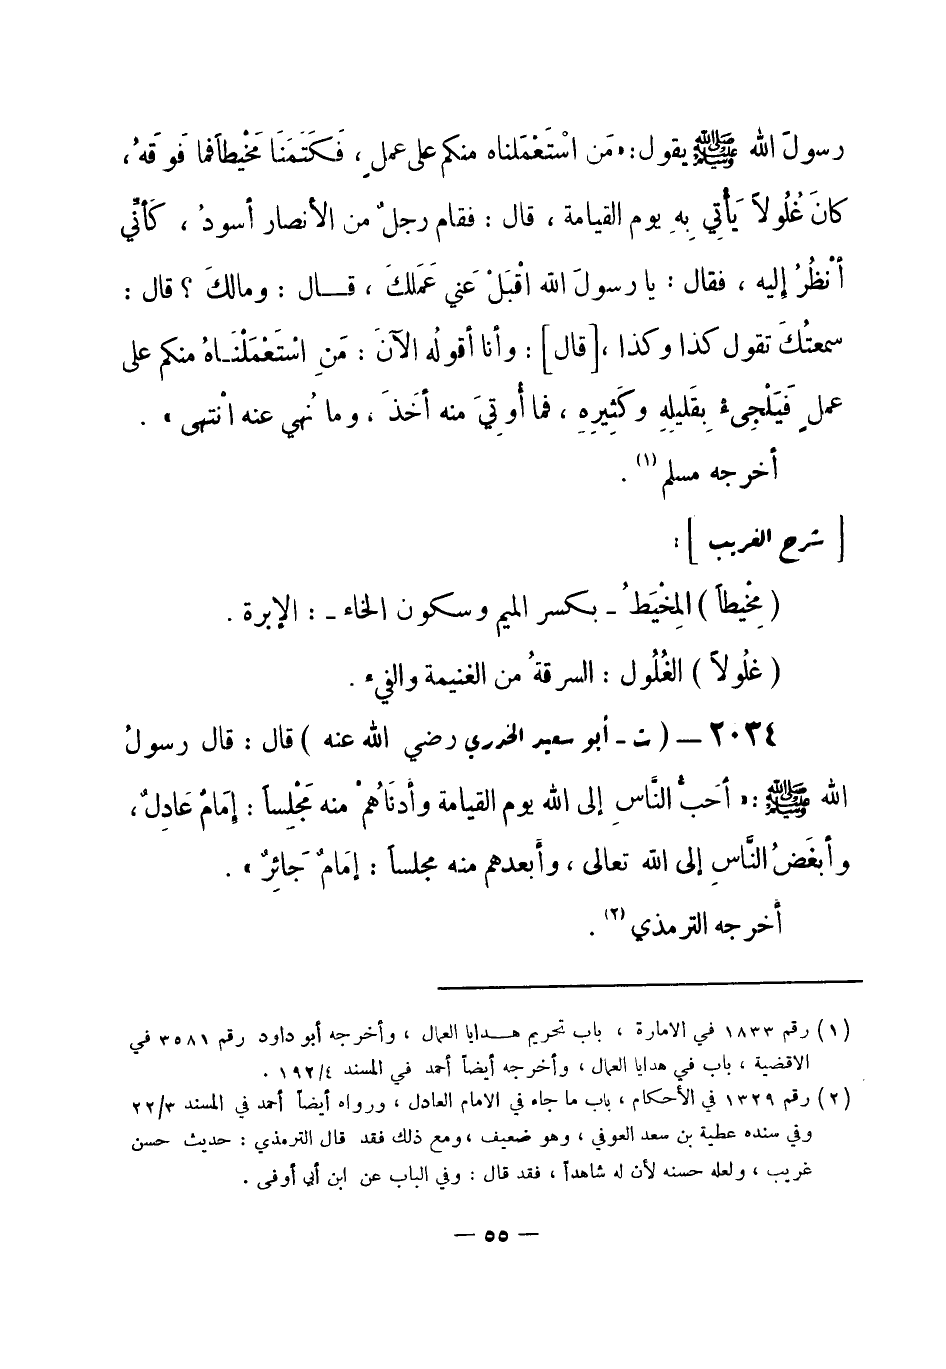 رسولَ الله ﷺ يقول: «مَن اسْتَعْمَلناه منكم على عملٍ ، فَكَتَمَنَا مَخْيطاً فما فَوقَهُ ،
كانَ غُلُولاً يَأْتِي بِهِ يوم القيامة ، قال : فقام رجلٌ من الأنصار أسودُ ، كَأَنِّي
أنْظُرُ إليه ، فقال : يا رسولَ الله اقْبَلْ عَني عَمَلكَ ، قــال : ومالكَ ؟ قال :
سمعتُكَ تقول كذا وكذا ، [قال] : وأنا أقولُه الآنَ : مَنِ اسْتَعْمَلْنَـاهُ منكم على
عملٍ فَيَلْجِىءْ بِقَليلِهِ وكَثِيرِهِ ، فما أُوتِيَ منه أخَذَ ، وما نُهي عنه انْتهى » .
أخرجه مسلم (١) .
[ شرح الغريب ] :
( مِخْيطاً ) المِخْيَطُ ـ بكسر الميم وسكون الخاء ـ : الإبرة .
( غلُولاً ) الغُلُول : السرقةُ من الغنيمة والفيء .
٢٠٣٤ – ( ت ـ أبو سعيد الخدري رضي الله عنه ) قال : قال رسولُ
الله ﷺ : « أحَبُّ النَّاسِ إلى الله يوم القيامة وأدنَاهُمْ منه مَجْلِساً : إمَامٌ عَادِلٌ ،
وأبغَضُ النَّاسِ إلى الله تعالى ، وأبعدهم منه مجلساً : إمَامٌ جَائِرٌ » .
أخرجه الترمذي (٢) .
(١) رقم ١٨٣٣ في الامارة ، باب تحريم هــدايا العمال ، وأخرجه أبو داود رقم ٣٥٨١ في
الاقضية ، باب في هدايا العمال ، وأخرجه أيضاً أحمد في المسند ١٩٢/٤ .
(٢) رقم ١٣٢٩ في الأحكام ، باب ما جاء في الامام العادل ، ورواه أيضاً أحمد في المسند ٢٢/٣
وفي سنده عطية بن سعد العوفي ، وهو ضعيف ، ومع ذلك فقد قال الترمذي : حديث حسن
غريب ، ولعله حسنه لأن له شاهداً ، فقد قال : وفي الباب عن ابن أبي أوفى .
— ٥٥ —